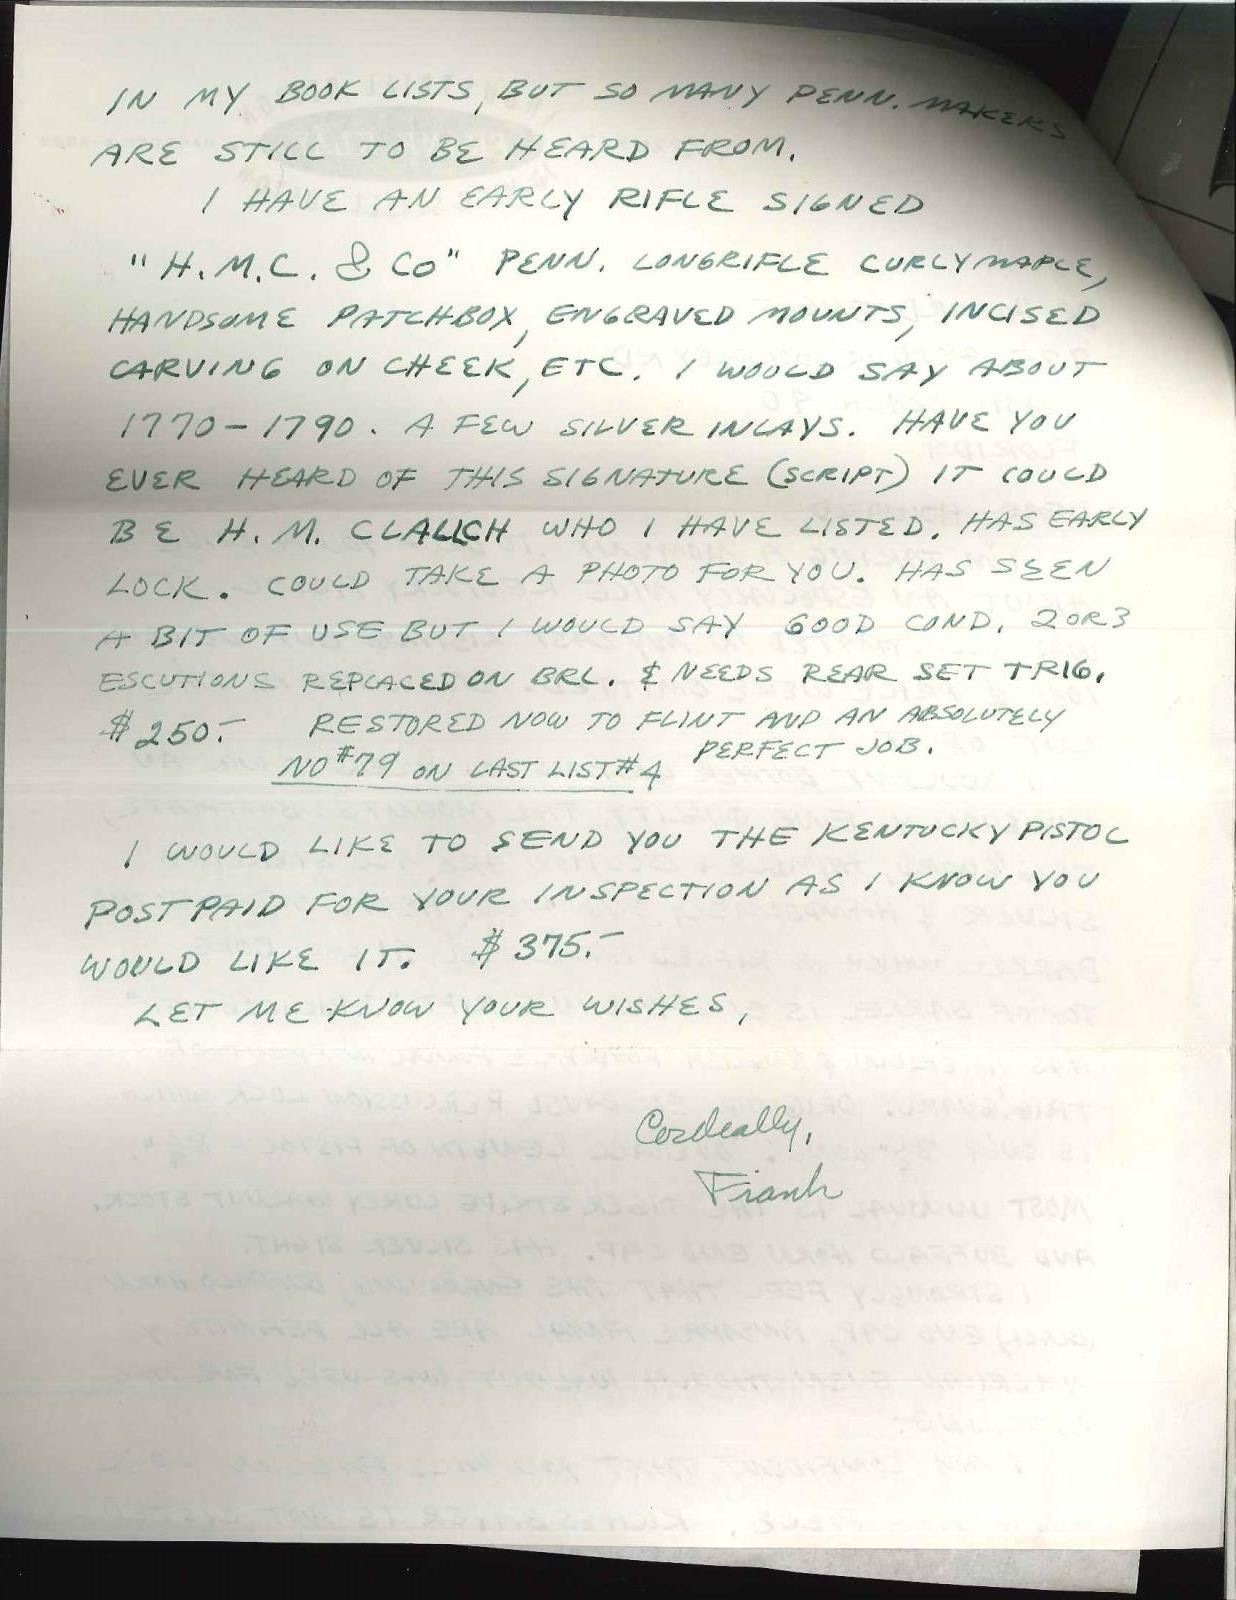 IN MY BOOK LISTS, BUT SO MANY PENN. MAKERS
ARE STILL TO BE HEARD FROM.
I HAVE AN EARLY RIFLE SIGNED
"H.M.C. & Co" PENN. LONGRIFLE CURLY MAPLE,
HANDSOME PATCHBOX, ENGRAVED MOUNTS, INCISED
CARVING ON CHEEK, ETC. I WOULD SAY ABOUT
1770-1790. A FEW SILVER INLAYS. HAVE YOU
EVER HEARD OF THIS SIGNATURE (SCRIPT) IT COULD
BE H. M. WHO I HAVE LISTED. HAS EARLY
LOCK. COULD TAKE A PHOTO FOR YOU. HAS SEEN
A BIT OF USE BUT I WOULD SAY GOOD COND. 2 OR 3
ESCUTIONS REPLACED ON BRL. & NEEDS REAR SET TRIG.
$250.- RESTORED NOW TO FLINT AND AN ABSOLUTELY
PERFECT JOB.
NO #79 ON LAST LIST #4
I WOULD LIKE TO SEND YOU THE KENTUCKY PISTOL
POSTPAID FOR YOUR INSPECTION AS I KNOW YOU
WOULD LIKE IT. $375.-
LET ME KNOW YOUR WISHES,
Cordeally,
Frank